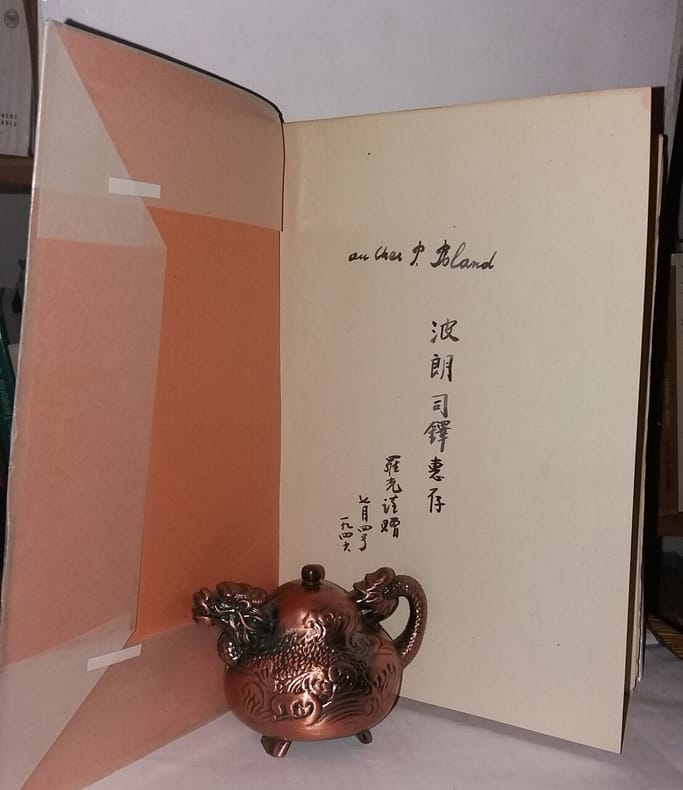 au Cher P. Boland
波朗司鐸惠存
羅光謹贈
七月四号
一九四六